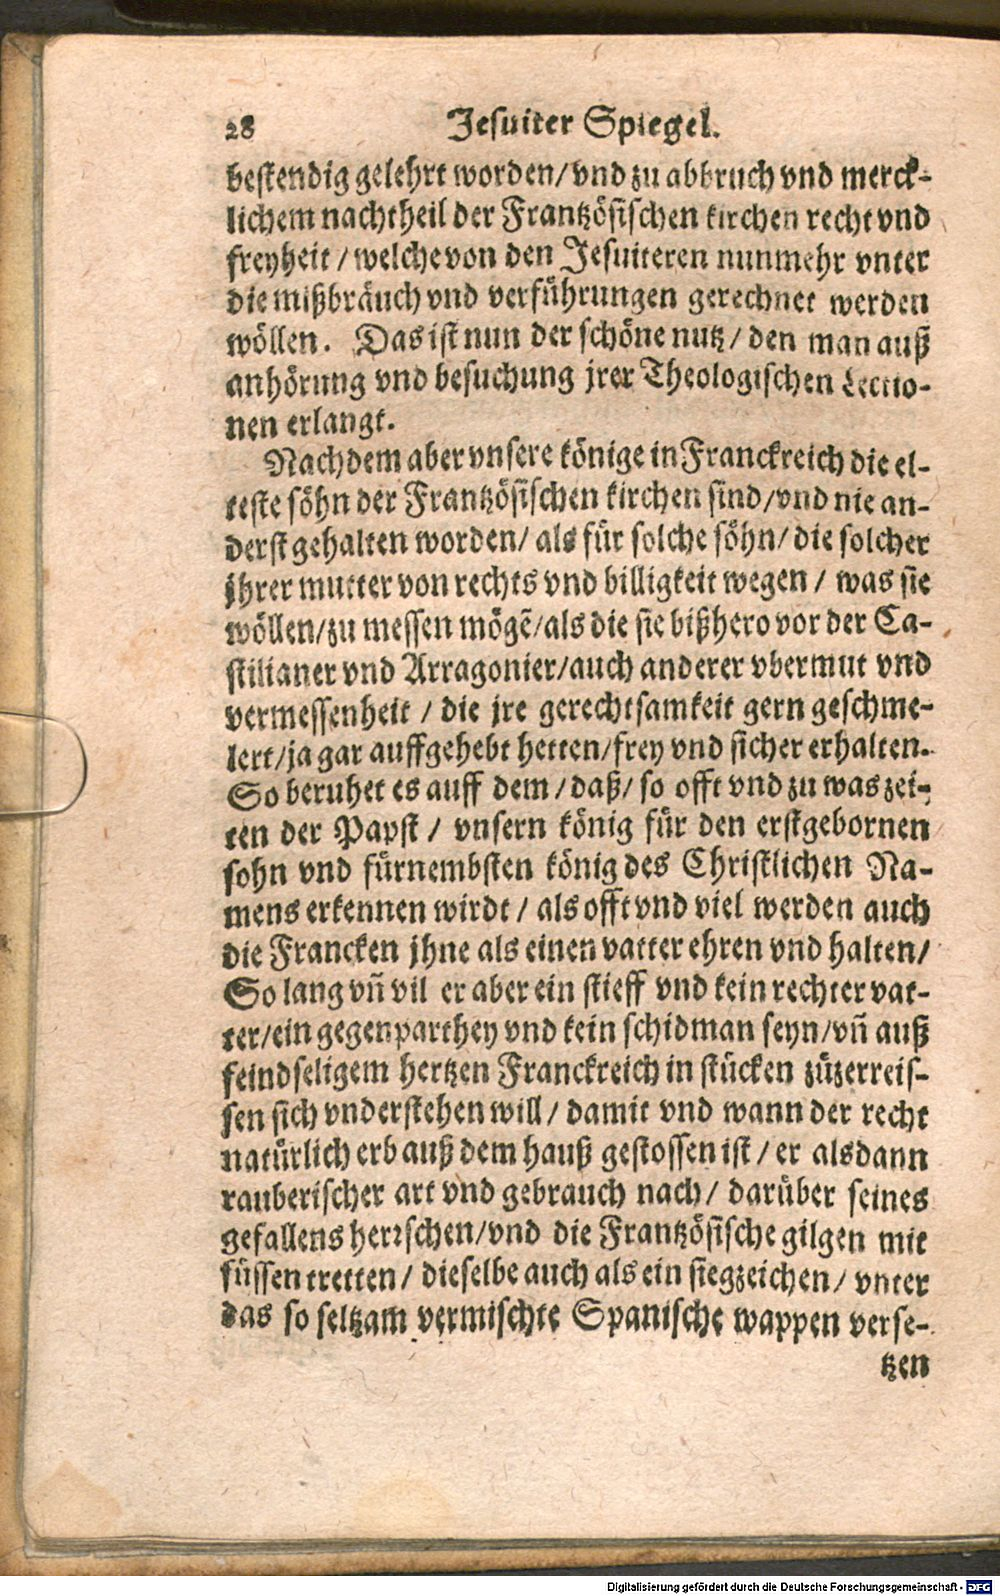 28 Jesuiter Spiegel.
bestendig gelehrt worden/ vnd zu abbruch vnd merck-
lichem nachtheil der Frantzösischen kirchen recht vnd
freyheit / welche von den Jesuiteren nunmehr vnter
die mißbräuch vnd verführungen gerechnet werden
wöllen. Das ist nun der schöne nutz/ den man auß
anhörung vnd besuchung jrer Theologischen Lectio-
nen erlangt.
Nach dem aber vnsere könige in Franckreich die el-
teste söhn der Frantzösischen kirchen sind/ vnd nie an-
derst gehalten worden/ als für solche söhn/ die solcher
jhrer mutter von rechts vnd billigkeit wegen / was sie
wöllen/ zu messen mögẽ/ als die sie bißhero vor der Ca-
stilianer vnd Arragonier/ auch anderer vbermut vnd
vermessenheit / die jre gerechtsamkeit gern geschme-
lert/ ja gar auffgehebt hetten/ frey vnd sicher erhalten.
So beruhet es auff dem / daß/ so offt vnd zu was zei-
ten der Papst / vnsern könig für den erstgebornen
sohn vnd fürnembsten könig des Christlichen Na-
mens erkennen wirdt / als offt vnd viel werden auch
die Francken jhne als einen vatter ehren vnd halten/
So lang vñ vil er aber ein stieff vnd kein rechter vat-
ter/ ein gegenparthey vnd kein schidman seyn/ vñ auß
feindseligem hertzen Franckreich in stücken zůzerreis-
sen sich vnderstehen will / damit vnd wann der recht
natürlich erb auß dem hauß gestossen ist / er alsdann
rauberischer art vnd gebrauch nach/ darüber seines
gefallens herrschen/ vnd die Frantzösische gilgen mit
füssen tretten/ dieselbe auch als ein siegzeichen/ vnter
das so seltzam vermischte Spanische wappen verse-
tzen
Digitalisierung gefördert durch die Deutsche Forschungsgemeinschaft - DFG